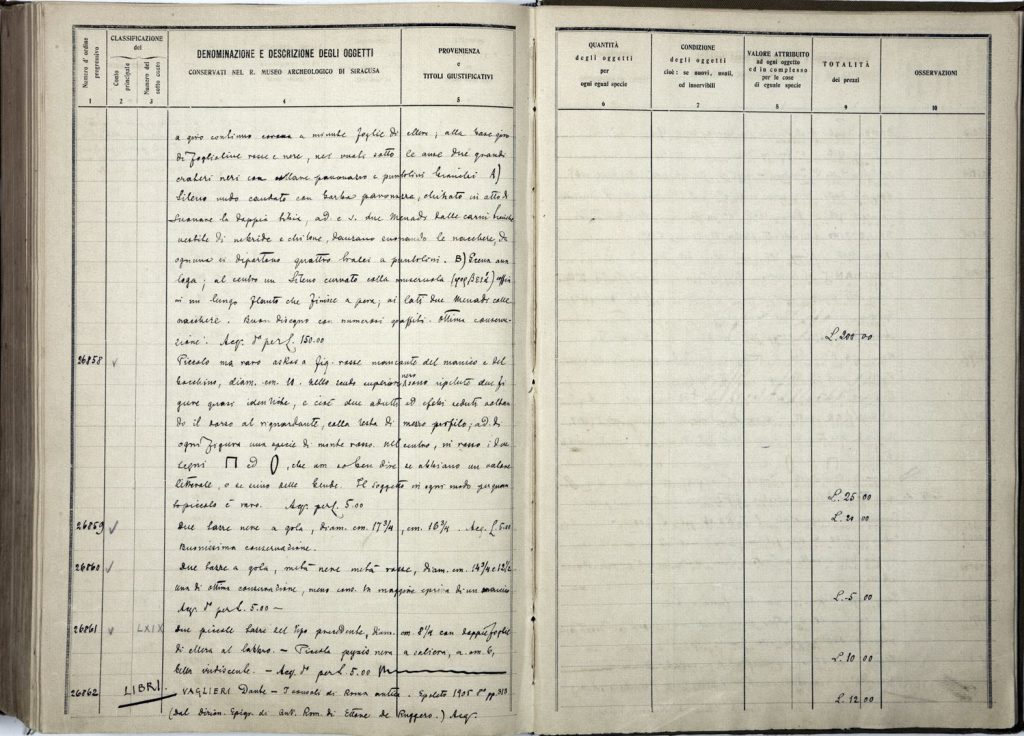 Numero d'ordine progressivo
CLASSIFICAZIONE del
Conto principale
Numero del sotto conto
DENOMINAZIONE E DESCRIZIONE DEGLI OGGETTI
CONSERVATI NEL R. MUSEO ARCHEOLOGICO DI SIRACUSA
PROVENIENZA
e
TITOLI GIUSTIFICATIVI
QUANTITÀ
degli oggetti
per
ogni egual specie
CONDIZIONE
degli oggetti
cioè: se nuovi, usati,
od inservibili
VALORE ATTRIBUITO
ad ogni oggetto
ed in complesso
per le cose
di eguale specie
TOTALITÀ
dei prezzi
OSSERVAZIONI
1 2 3 4 5 6 7 8 9 10
a giro continuo a minute foglie di ellera; alla base giro
di foglioline rosse e nere, nel vuoti sotto le anse due grandi
crateri neri con collare paonazzo e puntolini bianchi A)
Sileno nudo caudato con barba paonazza, chinato in atto di
suonare la doppia tibia, ad. e s. due Menadi dalle carni bianche
vestite di nebride e chitone, danzano suonando le nacchere, da
ognuna si dipartono quattro tralci a puntolini. B) Scena ana
loga; al centro un Sileno curvato colla museruola
in un lungo flauto che finisce a pera; ai lati due Menadi colle
nacchere. Buon disegno con numerosi graffiti. Ottima conserva-
zione. Acq. per L. 150.00 L. 200 00
26858 Piccolo ma raro askos a fig. rosse mancante del manico e del
bocchino, diam. cm. 10. Nello scudo superiore nero sono ripetute due fi
gure quasi identiche, e cioè due adulti ed efebi seduti voltan
do il dorso al riguardante, colla testa di mezzo profilo; ad. di
ogni figura una specie di monte rosso. Nel centro, in rosso i due
segni Π ed O, che non so ben dire se abbiano un valore
litterale, o se sieno delle bende. Il soggetto in ogni modo per quan
to piccolo è raro. Acq. per L. 5.00 L. 25 00
26859 Due tazze nere a gola, diam. cm. 17 3/4, cm. 16 3/4. Acq. L. 5.00 L. 20 00
Buonissima conservazione.
26860 Due tazze a gola, metà nere metà rosse, diam. cm. 14 3/4 e 12 1/2
una di ottima conservazione, meno cons. la maggiore priva di un manico
Acq. per L. 5.00 — L. 5 00
26861 LXIX Due piccole tazze del tipo precedente, diam. cm. 8 1/4 con doppie foglie
di ellera al labbro. — Piccola pyxis nera a saliera, a. cm. 6,
bella iridiscente. — Acq. per L. 5.00 L. 10 00
26862 LIBRI. VAGLIERI Dante — I consoli di Roma antica. Spoleto 1905 8° pp. 313
(dal Dizion. Epigr. di Ant. Rom. di Ettore de Ruggero.) Acq. L. 12 00